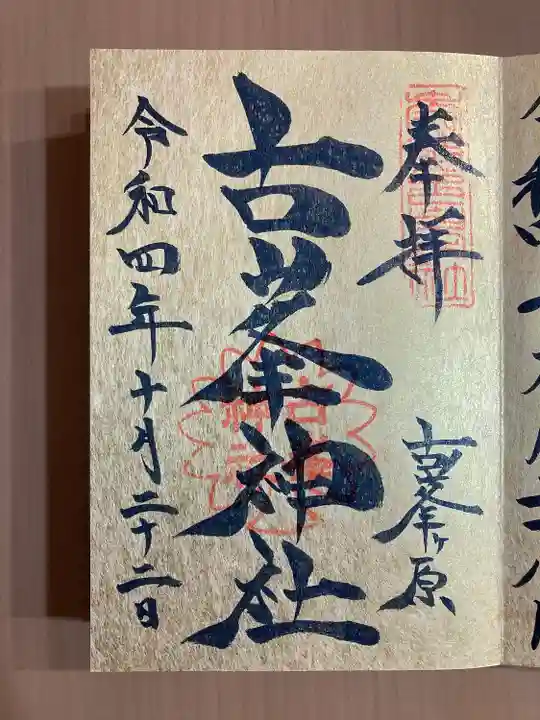 奉拝
古峯ヶ原
古峯神社
令和四年十月二十二日